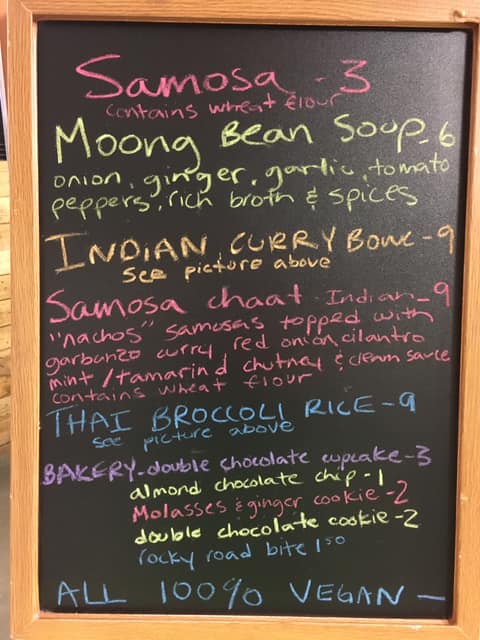 Samosa - 3
contains wheat flour
Moong Bean Soup - 6
onion, ginger, garlic, tomato
peppers, rich broth & spices
INDIAN CURRY Bowl - 9
See picture above
Samosa chaat - Indian - 9
"nachos" samosas topped with
garbanzo curry red onion, cilantro
mint / tamarind chutney & cream sauce
contains wheat flour
THAI BROCCOLI RICE - 9
see picture above
BAKERY - double chocolate cupcake - 3
almond chocolate chip - 1
Molasses & ginger cookie - 2
double chocolate cookie - 2
rocky road bite 1 50
ALL 100% VEGAN -